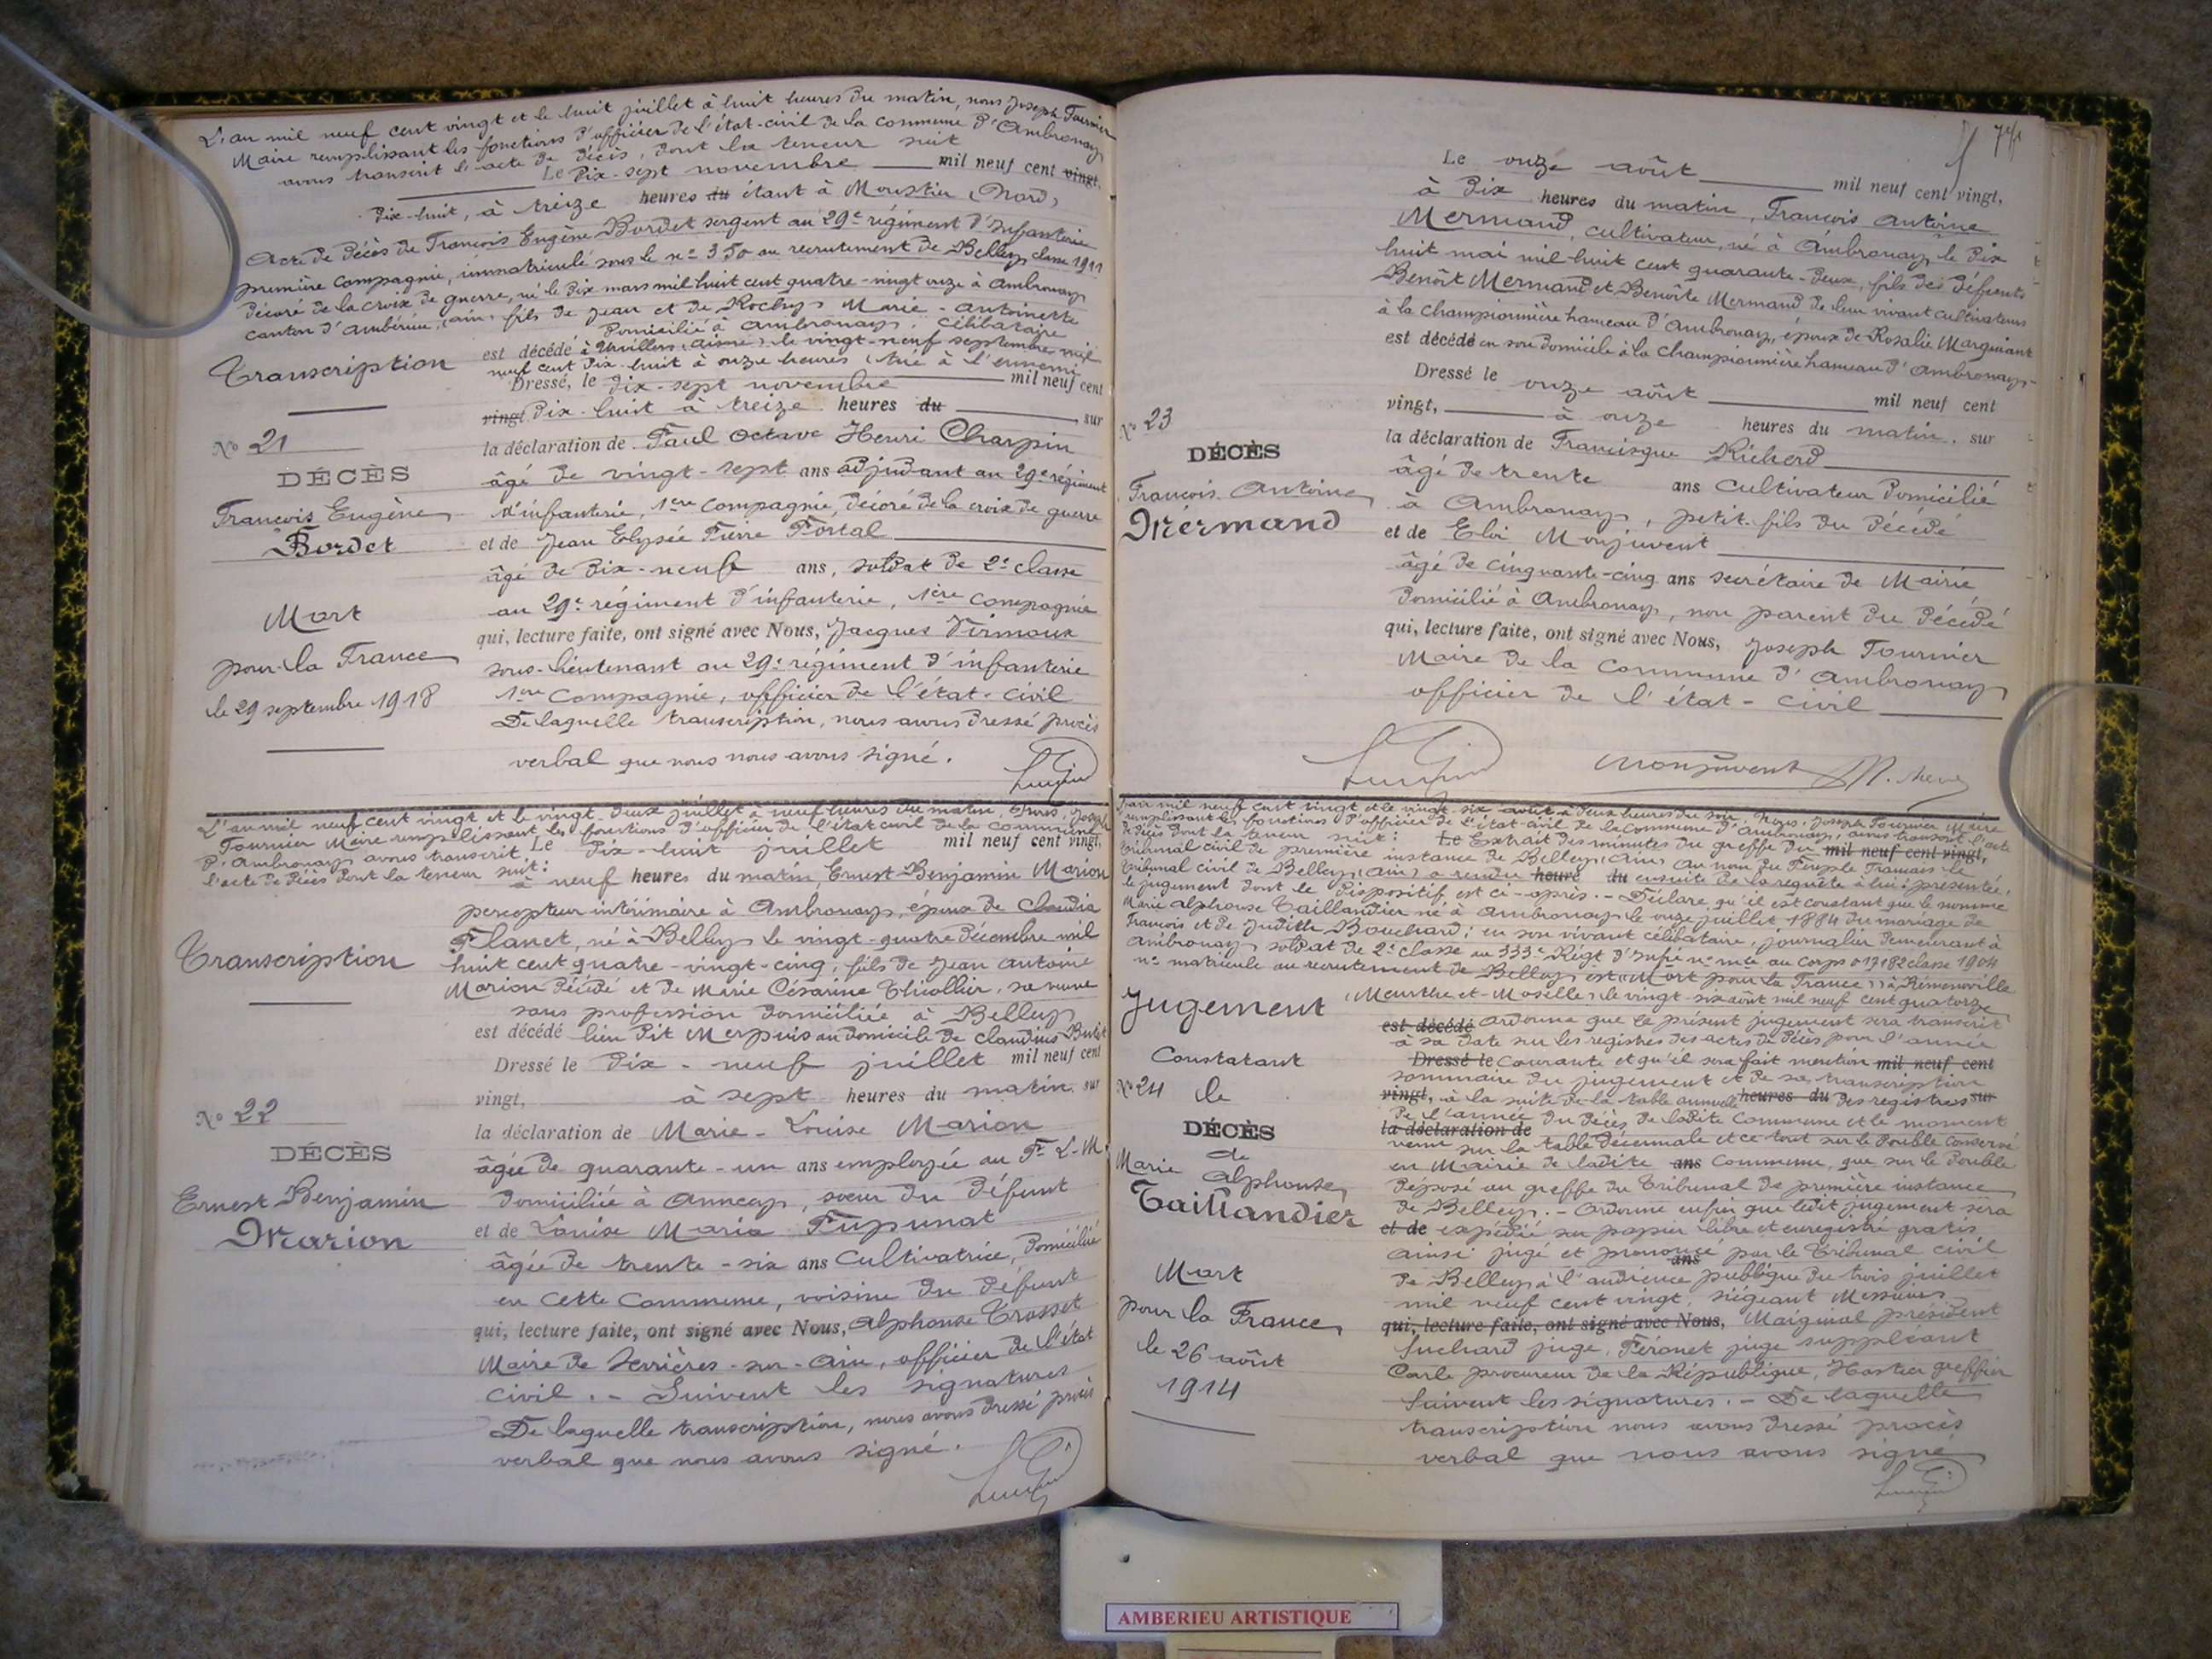 L'an mil neuf cent vingt et le huit juillet à huit heures du matin, nous Joseph Tournier
Maire remplissant les fonctions d'officier de l'état-civil de la commune d'Ambronay
avons transcrit l'acte de décès, dont la teneur suit
Le dix-sept novembre mil neuf cent vingt,
dix-huit, à treize heures du étant à Moustier (Nord)
Acte de décès de François Eugène Bordet sergent au 29e régiment d'Infanterie
première compagnie, immatriculé sous le n° 350 au recrutement de Belley classe 1911
décoré de la croix de guerre, né le dix mars mil huit cent quatre-vingt onze à Ambronay
canton d'Ambérieu, (Ain) fils de Jean et de Rochy Marie-Antoinette
Domicilié à Ambronay, célibataire
est décédé à Urvillers (Aisne) le vingt-neuf septembre mil
neuf cent dix-huit à onze heures (tué à l'ennemi
Dressé, le dix-sept novembre mil neuf cent
vingt dix-huit à treize heures du sur
la déclaration de Paul Octave Henri Charpin
âgé de vingt-sept ans adjudant au 29e régiment
d'infanterie, 1ère Compagnie, décoré de la croix de guerre
et de Jean Elysée Pierre Portal
âgé de dix-neuf ans, soldat de 2e classe
au 29e régiment d'infanterie, 1ère Compagnie
qui, lecture faite, ont signé avec Nous, Jacques Virmoux
sous-lieutenant au 29e régiment d'infanterie
1ère Compagnie, officier de l'état-civil
De laquelle transcription, nous avons dressé procès
verbal que nous nous avons signé.
Transcription
N° 21
DÉCÈS
François Eugène
Bordet
Mort
pour la France
le 29 septembre 1918
L'an mil neuf cent vingt et le vingt-deux juillet à neuf heures du matin, Nous, Joseph
Tournier Maire remplissant les fonctions d'officier de l'état civil de la Commune
d'Ambronay avons transcrit Le dix-huit juillet mil neuf cent vingt,
l'acte de décès dont la teneur suit:
à neuf heures du matin, Ernest Benjamin Marion
percepteur intérimaire à Ambronay, époux de Claudia
Planet, né à Belley le vingt-quatre décembre mil
huit cent quatre-vingt-cinq, fils de Jean Antoine
Marion décédé et de Marie Césarine Thicollier, sa veuve
sans profession domiciliée à Belley
est décédé lieu dit Merpuis au domicile de Claudius
Dressé le dix-neuf juillet mil neuf cent
vingt, à sept heures du matin, sur
la déclaration de Marie-Louise Marion
âgée de quarante-un ans employée au P.L.M.
domiciliée à Annecy, soeur du défunt
et de Louise Maria Pupunat
âgée de trente-six ans Cultivatrice, domiciliée
en cette Commune, voisine du défunt
qui, lecture faite, ont signé avec Nous, Alphonse Trosset
Maire de Serrières-sur-Ain, officier de l'état
civil.- Suivent les signatures
De laquelle transcription, nous avons dressé procès
verbal que nous avons signé.
Transcription
N° 22
DÉCÈS
Ernest Benjamin
Marion
Le onze août mil neuf cent vingt,
à dix heures du matin, François Antoine
Mermand, cultivateur, né à Ambronay le dix
huit mai mil huit cent quarante-deux, fils des défunts
Benoît Mermand et Benoîte Mermand de leur vivant cultivateurs
à la Championnière hameau d'Ambronay, époux de Rosalie Marguiant
est décédé en son domicile à la Championnière hameau d'Ambronay-
Dressé le onze août mil neuf cent
vingt, à onze heures du matin, sur
la déclaration de Francisque Richerd
âgé de trente ans Cultivateur domicilié
à Ambronay, petit-fils du décédé
et de Eloi Monjuvent
âgé de cinquante-cinq ans secrétaire de Mairie
domicilié à Ambronay, non parent du décédé
qui, lecture faite, ont signé avec Nous, Joseph Tournier
Maire de la Commune d'Ambronay
officier de l'état-civil
Monjuvent
N° 23
DÉCÈS
François Antoine
Mermand
l'an mil neuf cent vingt et le vingt-six août à deux heures du soir, Nous, Joseph Tournier Maire
remplissant les fonctions d'officier de l'état-civil de la Commune d'Ambronay, avons transcrit l'acte
de décès dont la teneur suit: Le Extrait des minutes du greffe du mil neuf cent vingt,
tribunal civil de première instance de Belley (Ain) Au nom du Peuple Français le
tribunal civil de Belley (Ain) a rendu heure du ensuite de la requête à lui présentée,
le jugement dont le dispositif est ci-après.- Déclare qu'il est constant que le nommé
Marie Alphonse Taillandier né à Ambronay le onze juillet 1884 du mariage de
François et de Judith Bouchard; en son vivant célibataire, journalier demeurant à
Ambronay soldat de 2e classe au 333e Régt d'Infie n° mle au Corps 017182 classe 1904
n° matricule au recrutement de Belley est "Mort pour la France" à Rémenoville
(Meurthe-et-Moselle) le vingt-six août mil neuf cent quatorze
est décédé Ordonne que le présent jugement sera transcrit
à sa date sur les registres des actes de décès pour l'année
Dressé le Courante et qu'il sera fait mention mil neuf cent
sommaire du jugement et de sa transcription
vingt, à la suite de la table annuelle heures du des registres sur
de l'année du décès de ladite Commune et le moment
la déclaration de venu sur la table décennale et ce tout sur le double conservé
en Mairie de ladite ans Commune, que sur le double
déposé au greffe du Tribunal de première instance
de Belley.- Ordonne enfin que ledit jugement sera
et de expédié sur papier libre et enregistré gratis
Ainsi jugé et prononcé par le Tribunal civil
ans
de Belley à l'audience publique du trois juillet
mil neuf cent vingt, siégeant Messieurs
qui, lecture faite, ont signé avec Nous, Marginal président
Suchard juge, Péronet juge suppléant
Carle procureur de la République, Hostier greffier
Suivent les signatures.- De laquelle
transcription nous avons dressé procès
verbal que nous avons signé
Jugement
Constatant
N° 24 le
DÉCÈS
de
Marie Alphonse
Taillandier
Mort
pour la France
le 26 août
1914
AMBERIEU ARTISTIQUE